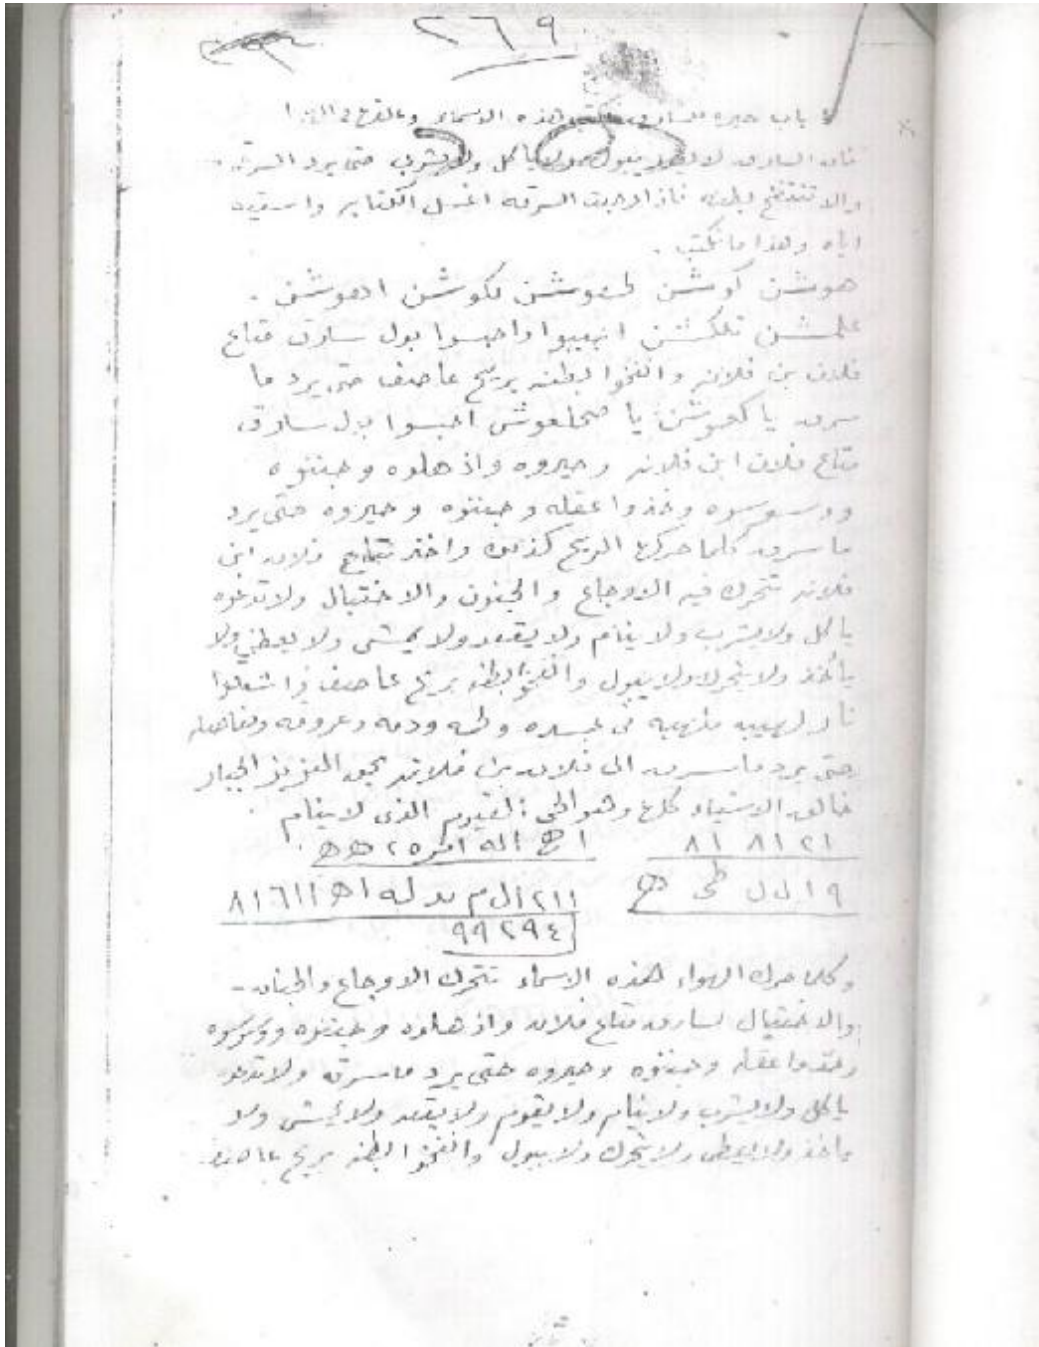 ٢٦٩
باب حيره للسارق تكتب هذه الاسماء وعلقها في الهوا
فان السارق لا يبول ولا ياكل ولا يشرب حتى يرد السرقه
والا تنتفخ بطنه فاذا رديت السرقه اغسل الكتاب واسقيه
اياه وهذا ما تكتب .
هوشن كوشن طعوشن لكوشن اهوشن .
علشن تعكشن اجيبوا واحبسوا بول سارق متاع
فلان بن فلانه وانفخوا بطنه بريح عاصف حتى يرد ما
سرق يا كعوشن يا احبسوا بول سارق
متاع فلان ابن فلانه وحيروه واذهلوه وجننوه
ووسوسوه وخذوا عقله وجننوه وحيروه حتى يرد
ما سرق كلما حركها الريح كذلك واخذ متاع فلان ابن
فلانه تتحرك فيه الاوجاع والجنون والاختبال ولا تدعوه
ياكل ولا يشرب ولا ينام ولا يقعد ولا يمشي ولا يعطي ولا
يأخذ ولا يتحرك ولا يبول وانفخوا بطنه بريح عاصف واشعلوا
نار لهيبه ملهبه في جسده ولحمه ودمه وعروقه ومفاصله
حتى يرد ما سرق الى فلان بن فلانه بحق العزيز الجبار
خالق الاشياء كلها وهو الحي القيوم الذي لا ينام
٨١ ٨١٢١ اله
١٩ ل ل طى هـ ٢١١ ال م له اهـ ٨١٦١١
٩٩٢٩٤
وكلما حرك الهواء هذه الاسماء تتحرك الاوجاع والجنان
والاختبال لسارق متاع فلان واذهلوه وجننوه ووسوسوه
وخذوا عقله وجننوه وحيروه حتى يرد ما سرقه ولا تدعوه
ياكل ولا يشرب ولا ينام ولا يقوم ولا يقعد ولا يمشي ولا
ياخذ ولا يعطى ولا يتحرك ولا يبول وانفخوا بطنه بريح عاصف